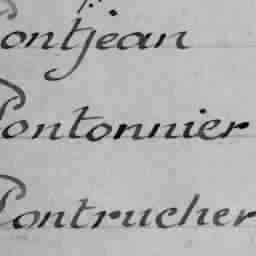 Pontjean
Pontonnier
Pontrucher